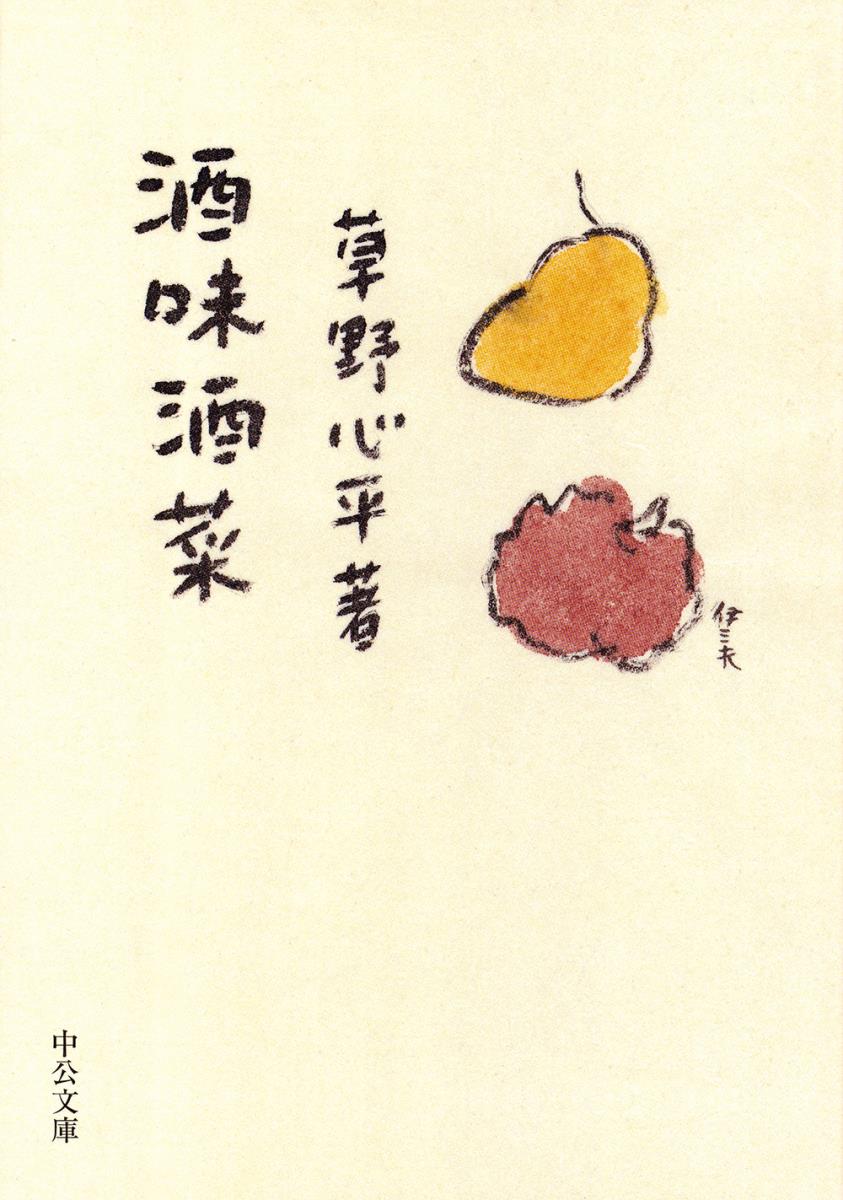 酒味酒菜
草野心平著
伊三夫
中公文庫